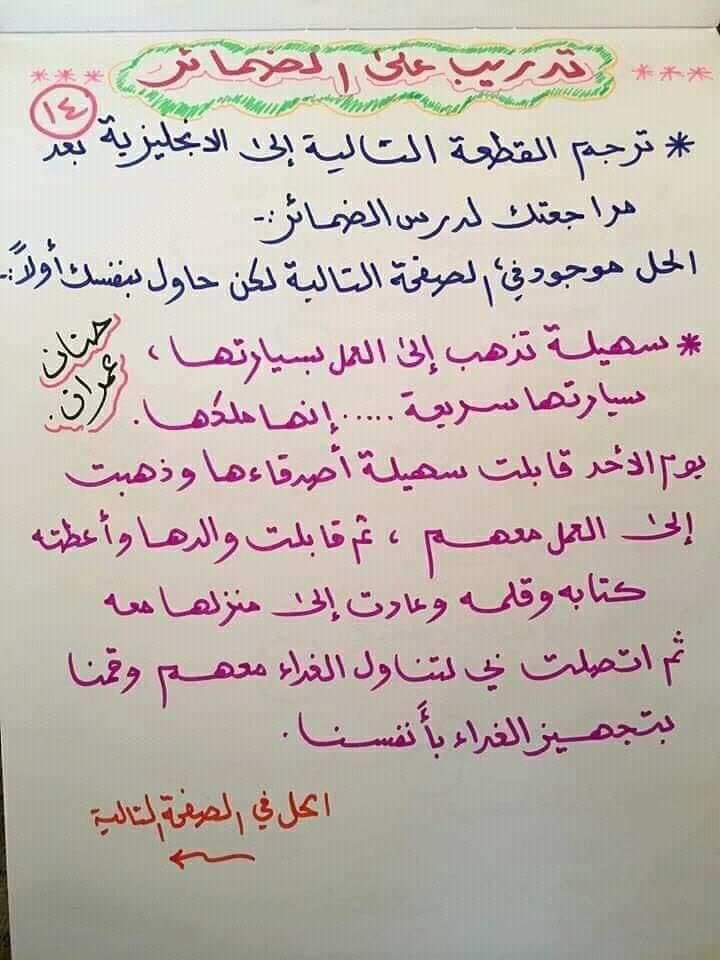 تدريب على الضمائر
١٤
* ترجم القطعة التالية إلى الانجليزية بعد
مراجعتك لدرس الضمائر:-
الحل موجود في الصفحة التالية لكن حاول بنفسك أولاً:-
حنان
عمران
* سهيلة تذهب إلى العمل بسيارتها ،
سيارتها سريعة ..... إنها ملكها.
يوم الأحد قابلت سهيلة أصدقاءها وذهبت
إلى العمل معهم ، ثم قابلت والدها وأعطته
كتابه وقلمه وعادت إلى منزلها معه
ثم اتصلت بي لتناول الغداء معهم وقمنا
بتجهيز الغداء بأنفسنا.
الحل في الصفحة التالية